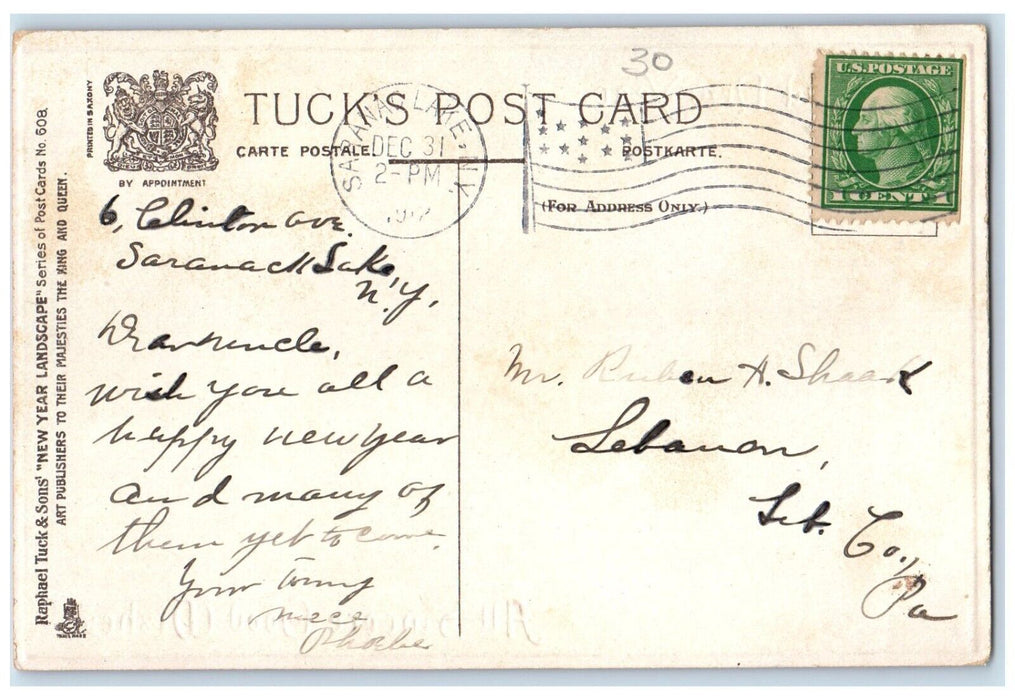 30
TUCK'S POST CARD
CARTE POSTALE
POSTKARTE.
(FOR ADDRESS ONLY.)
BY APPOINTMENT
PRINTED IN SAXONY
Raphael Tuck & Sons' "NEW YEAR LANDSCAPE" Series of Post Cards No. 608.
ART PUBLISHERS TO THEIR MAJESTIES THE KING AND QUEEN.
TRADE MARK
SARANAC LAKE, N.Y.
DEC 31
2-PM
1912
U.S. POSTAGE
1 CENT 1
6, Clinton ave.
Saranack Lake,
N.Y,
Dear uncle,
wish you all a
happy new year
and many of
them yet to come.
Your loving
niece
Phoebe
Mr. Ruben H. Shaak
Lebanon,
Leb. Co.,
Pa